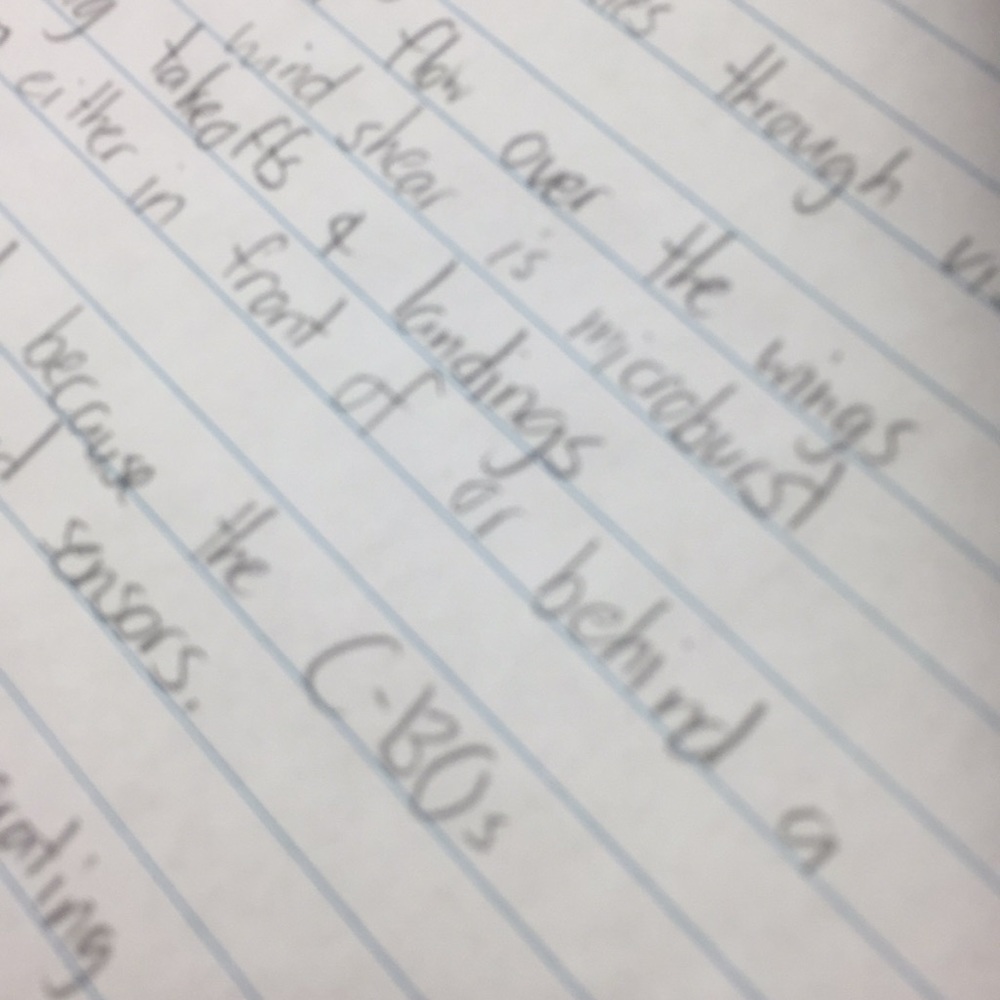 through
flow over the wings
wind shear is microburst
takeoffs & landings
either in front of or behind a
because the C-130s
sensors.